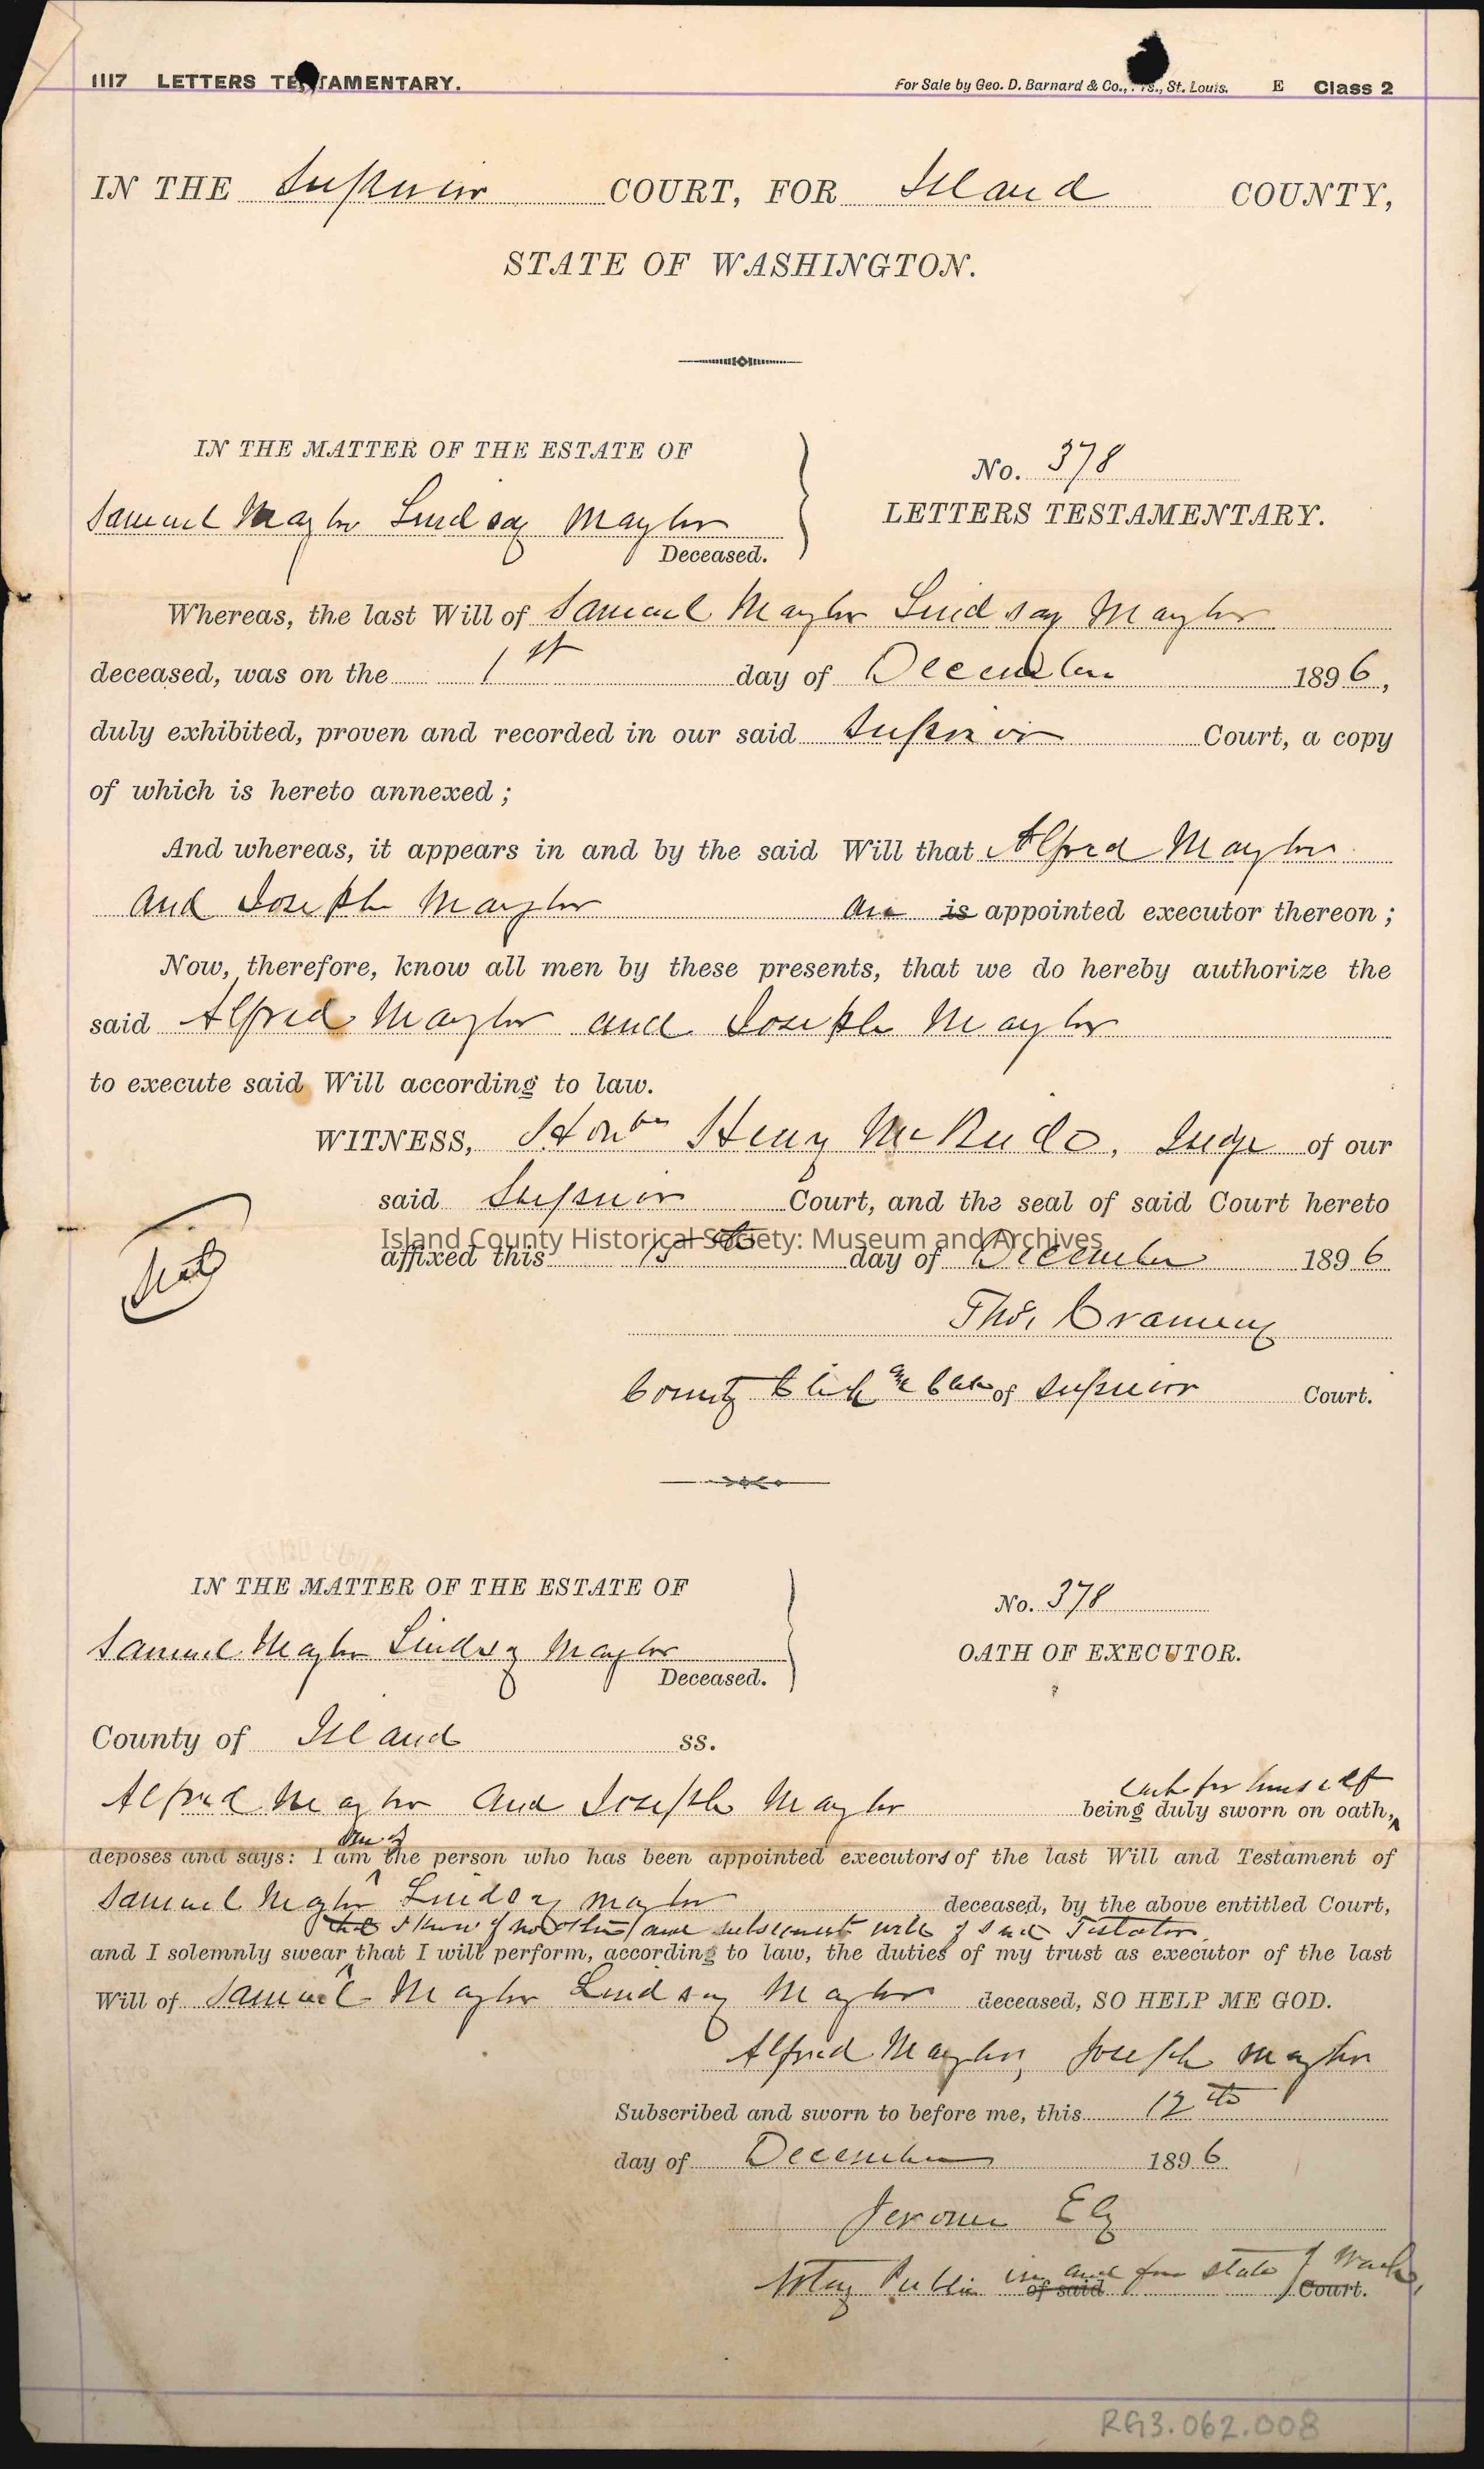 1117 LETTERS TESTAMENTARY. For Sale by Geo. D. Barnard & Co., St. Louis. E Class 2
IN THE Superior COURT, FOR Island COUNTY,
STATE OF WASHINGTON.
IN THE MATTER OF THE ESTATE OF
Samuel Maylor Lindsay Maylor
Deceased.
No. 378
LETTERS TESTAMENTARY.
Whereas, the last Will of Samuel Maylor Lindsay Maylor
deceased, was on the 1st day of December 1896,
duly exhibited, proven and recorded in our said Superior Court, a copy
of which is hereto annexed;
And whereas, it appears in and by the said Will that Alfred Maylor
and Joseph Maylor are is appointed executor thereon;
Now, therefore, know all men by these presents, that we do hereby authorize the
said Alfred Maylor and Joseph Maylor
to execute said Will according to law.
WITNESS, Honble Henry McBride, Judge of our
said Superior Court, and the seal of said Court hereto
Island County Historical Society: Museum and Archives
affixed this 15th day of December 1896
Seal
Thos. Cramey
County Clerk and Clerk of Superior Court.
IN THE MATTER OF THE ESTATE OF
Samuel Maylor Lindsay Maylor
Deceased.
No. 378
OATH OF EXECUTOR.
County of Island ss.
each for himself
Alfred Maylor and Joseph Maylor being duly sworn on oath,
one of
deposes and says: I am the person who has been appointed executors of the last Will and Testament of
Samuel Maylor Lindsay Maylor deceased, by the above entitled Court,
that I know of no other and subsequent will of said Testator
and I solemnly swear that I will perform, according to law, the duties of my trust as executor of the last
Will of Samuel Maylor Lindsay Maylor deceased, SO HELP ME GOD.
Alfred Maylor, Joseph Maylor
Subscribed and sworn to before me, this 12th
day of December 1896
Jerome Ely
Notary Public in and for state of Wash,
of said Court.
RG3.062.008